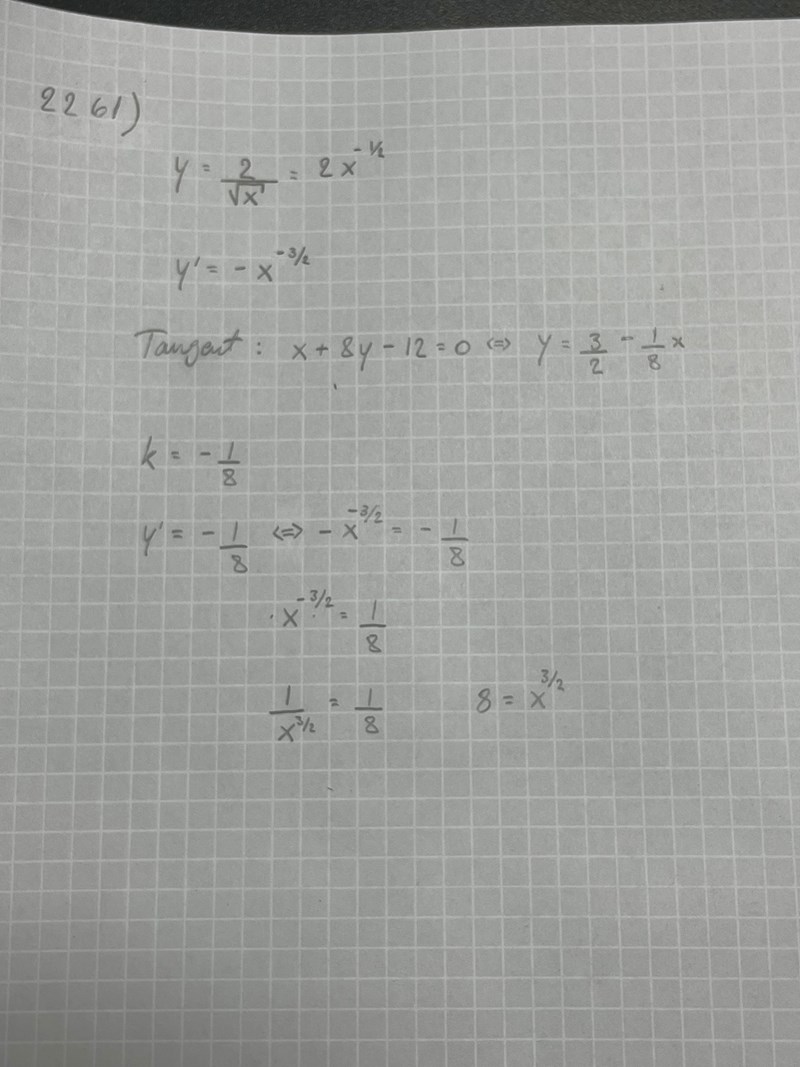 2261)
y = 2/√x = 2x^-1/2
y' = - x^-3/2
Tangent : x + 8y - 12 = 0 <=> y = 3/2 - 1/8 x
k = - 1/8
y' = - 1/8 <=> - x^-3/2 = - 1/8
x^-3/2 = 1/8
1/x^3/2 = 1/8 8 = x^3/2